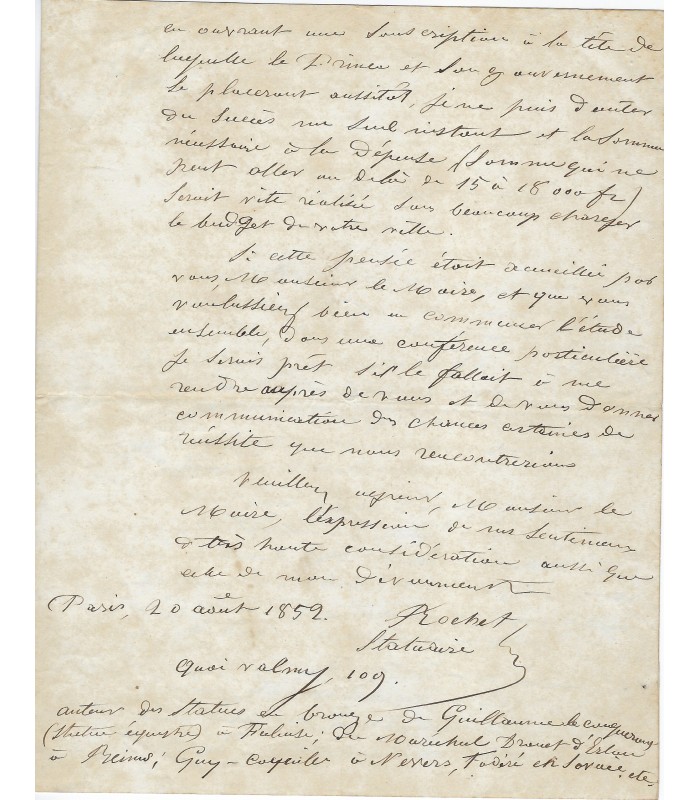 en ouvrant une souscription à la tête de
laquelle le Prince et son gouvernement
se placeront aussitôt, je ne puis douter
du succès un seul instant et la somme
nécessaire à la dépense (somme qui ne
peut aller au delà de 15 à 18 000 fr)
serait vite réalisée sans beaucoup charger
le budget de votre ville.
Si cette pensée était accueillie par
vous, Monsieur le Maire, et que vous
voulussiez bien en commencer l'étude
ensemble, dans une conférence particulière
je serais prêt s'il le fallait à me
rendre auprès de vous et de vous donner
communication des chances certaines de
réussite que nous rencontrerions
Veuillez agréer, Monsieur le
Maire, l'expression de mes sentiments
de très haute considération aussi que
celle de mon dévouement
Paris, 20 août 1852.
Rochet
Statuaire
Quai valmy, 109.
auteur des statues en bronze de Guillaume le conquérant
(statue équestre) à Falaise; du Maréchal Drouet d'Erlon
à Reims; Guy-Coquille à Nevers, Fodéré en Savoie. etc.